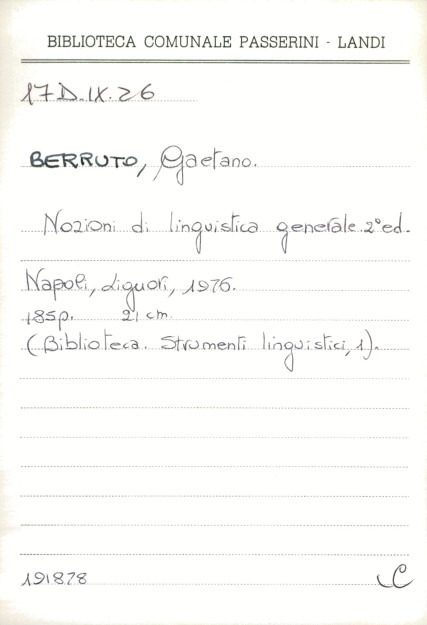 BIBLIOTECA COMUNALE PASSERINI - LANDI
17 D.IX.26
BERRUTO, Gaetano.
Nozioni di linguistica generale. 2° ed.
Napoli, Liguori, 1976.
185p. 21 cm.
(Biblioteca. Strumenti linguistici, 1).
191878